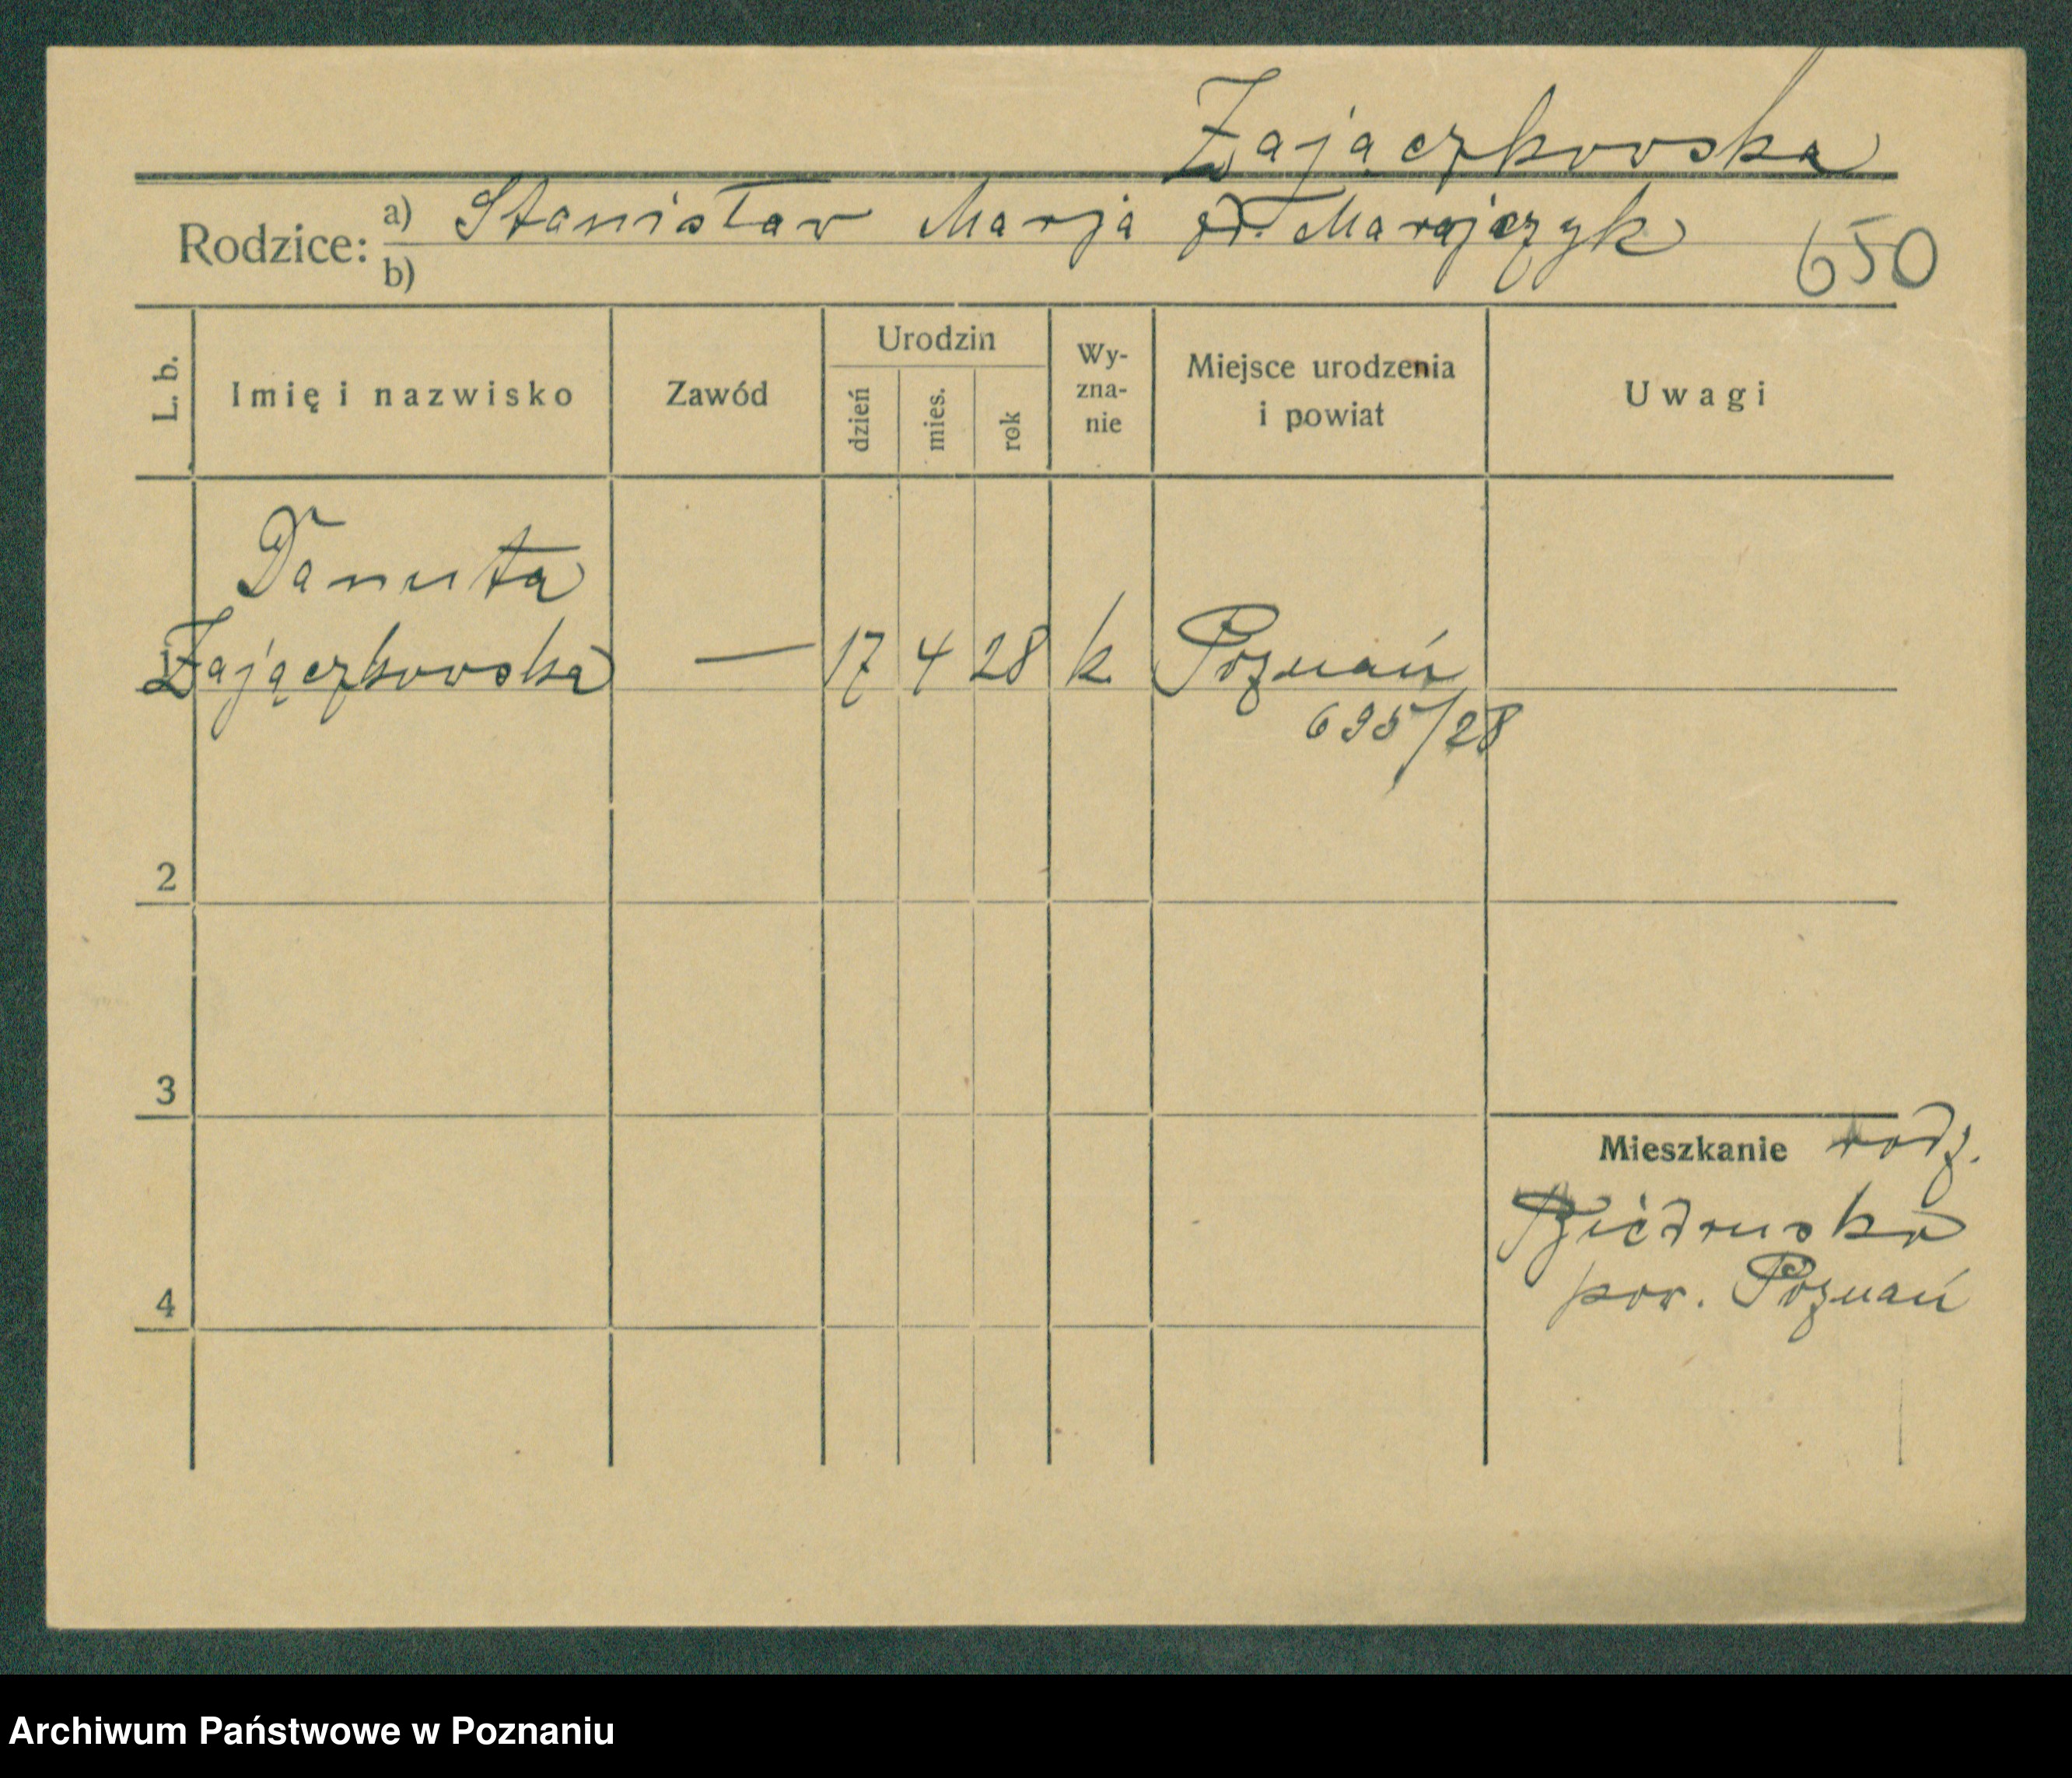 Zajączkowska
Rodzice: a) Stanisław Marja zd. Marajczyk
b)
650
L. b.
Imię i nazwisko
Zawód
Urodzin
dzień
mies.
rok
Wy-
zna-
nie
Miejsce urodzenia
i powiat
Uwagi
Danuta
1 Zajączkowska — 17 4 28 k Poznań
695/28
2
3
Mieszkanie rodz.
Biedrusko
pow. Poznań
4
Archiwum Państwowe w Poznaniu